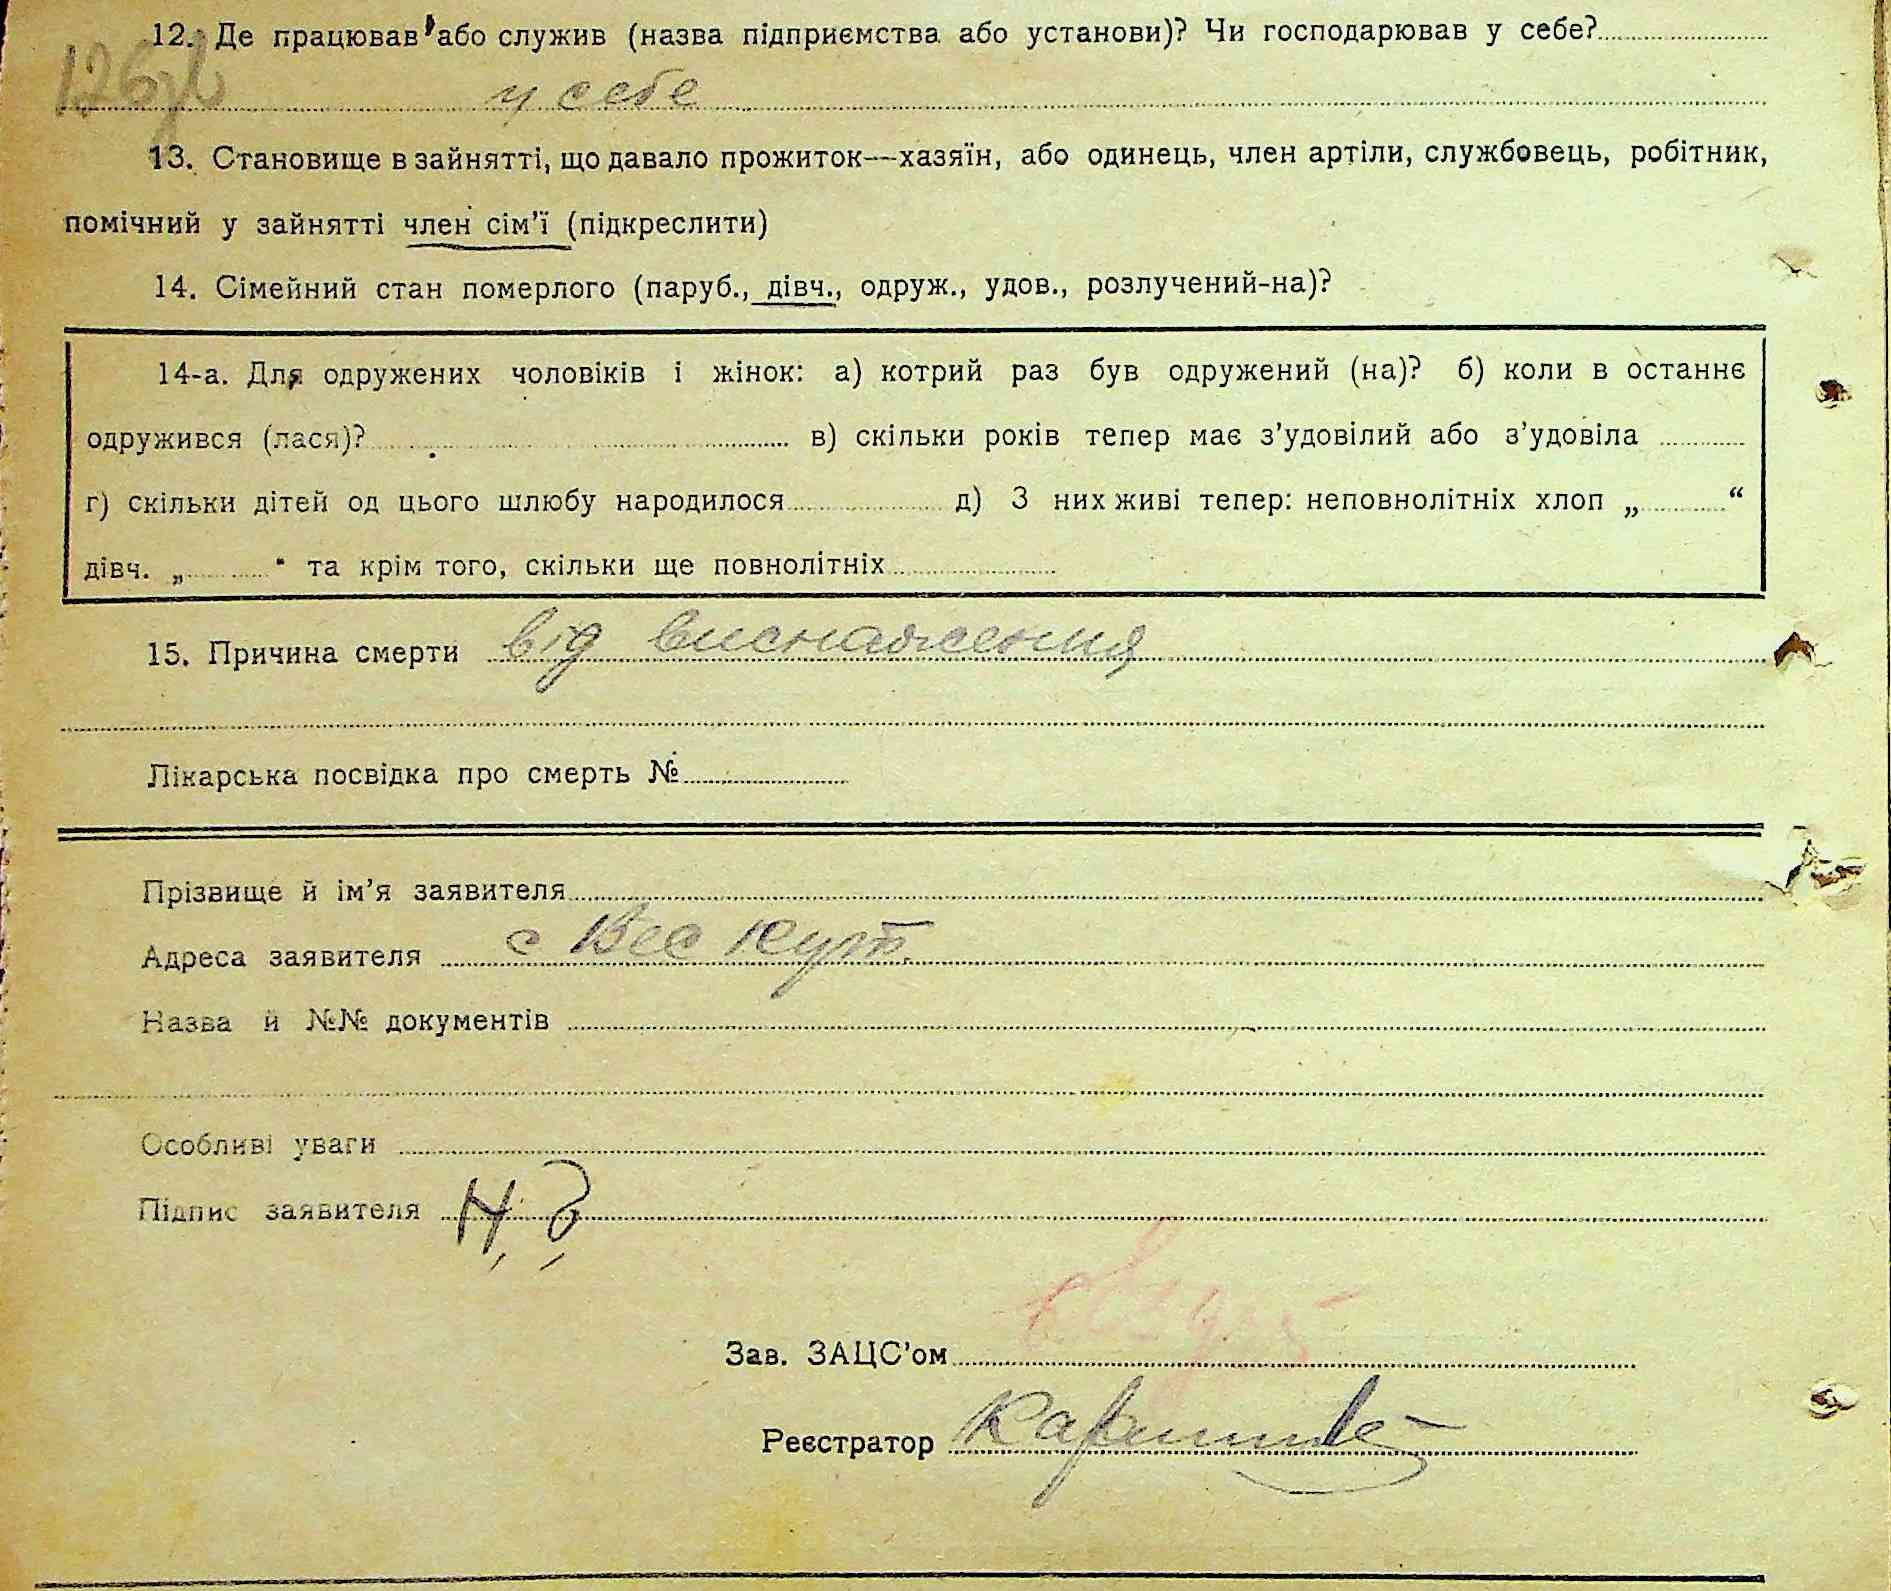 12. Де працював або служив (назва підприємства або установи)? Чи господарював у себе?
126зв
у себе
13. Становище в зайнятті, що давало прожиток—хазяїн, або одинець, член артіли, службовець, робітник,
помічний у зайнятті член сім'ї (підкреслити)
14. Сімейний стан померлого (паруб., дівч., одруж., удов., розлучений-на)?
14-а. Для одружених чоловіків і жінок: а) котрий раз був одружений (на)? б) коли в останнє
одружився (лася)? в) скільки років тепер має з'удовілий або з'удовіла
г) скільки дітей од цього шлюбу народилося д) З них живі тепер: неповнолітніх хлоп „ “
дівч. „ “ та крім того, скільки ще повнолітніх
15. Причина смерти від виснаження
Лікарська посвідка про смерть №
Прізвище й ім'я заявителя
Адреса заявителя с Вес Кут.
Назва й №№ документів
Особливі уваги
Підпис заявителя
Зав. ЗАЦС'ом
Реєстратор